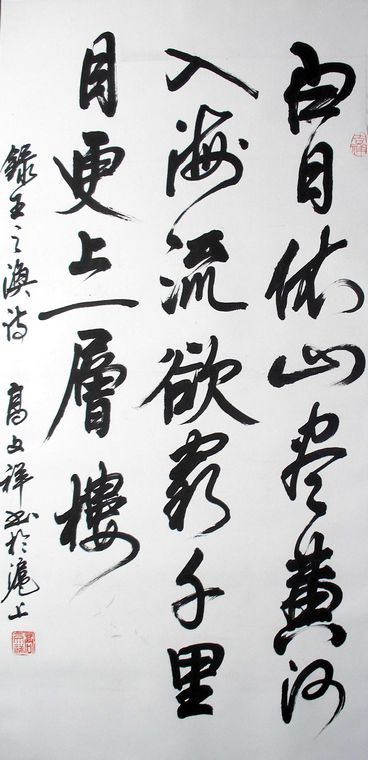 白日依山尽黄河
入海流欲穷千里
目更上一層樓
錄王之渙詩 高文祥书於滬上